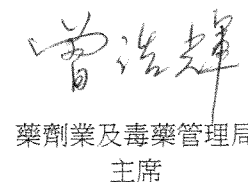 曾浩輝
藥劑業及毒藥管理局
主席